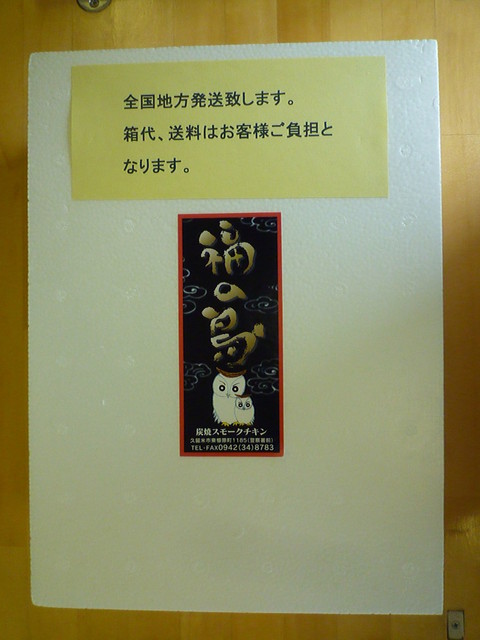 全国地方発送致します。
箱代、送料はお客様ご負担と
なります。
福の鳥
炭焼スモークチキン
久留米市東櫛原町1165(警察署前)
TEL・FAX0942(34)8783